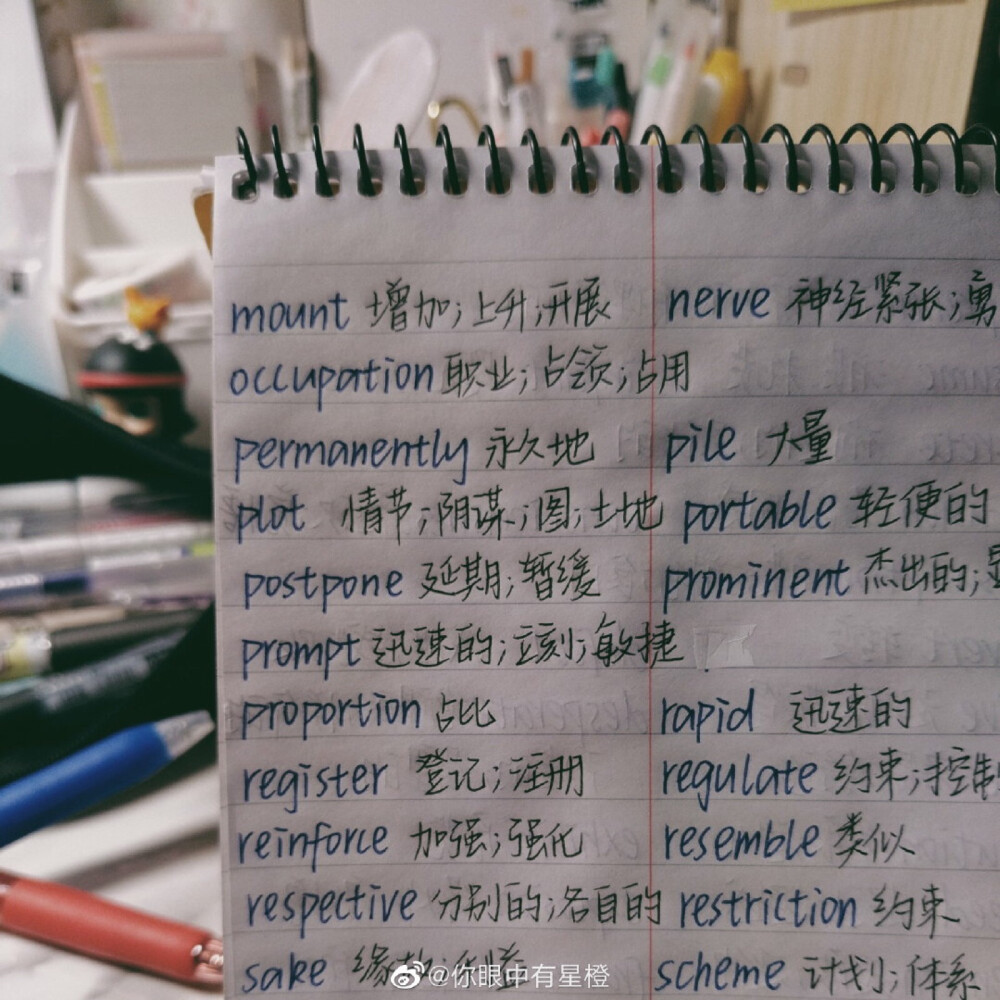 mount 增加;上升;开展 nerve 神经紧张;勇
occupation 职业;占领;占用
permanently 永久地 pile 大量
plot 情节;阴谋;图;土地 portable 轻便的
postpone 延期;暂缓 prominent 杰出的;
prompt 迅速的;立刻;敏捷
proportion 占比 rapid 迅速的
register 登记;注册 regulate 约束;控制
reinforce 加强;强化 resemble 类似
respective 分别的;各自的 restriction 约束
sake 缘 scheme 计划;体系
@你眼中有星橙